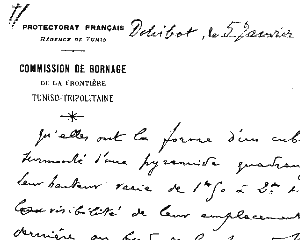 PROTECTORAT FRANÇAIS
RÉGENCE DE TUNIS
Dehibat, le 5 Janvier
COMMISSION DE BORNAGE
DE LA FRONTIÈRE
TUNISO-TRIPOLITAINE
qu'elles ont la forme d'un cub
surmonté d'une pyramide quadran
leur hauteur varie de 1m50 à 2m
visibilité de leur emplacement
dernière au